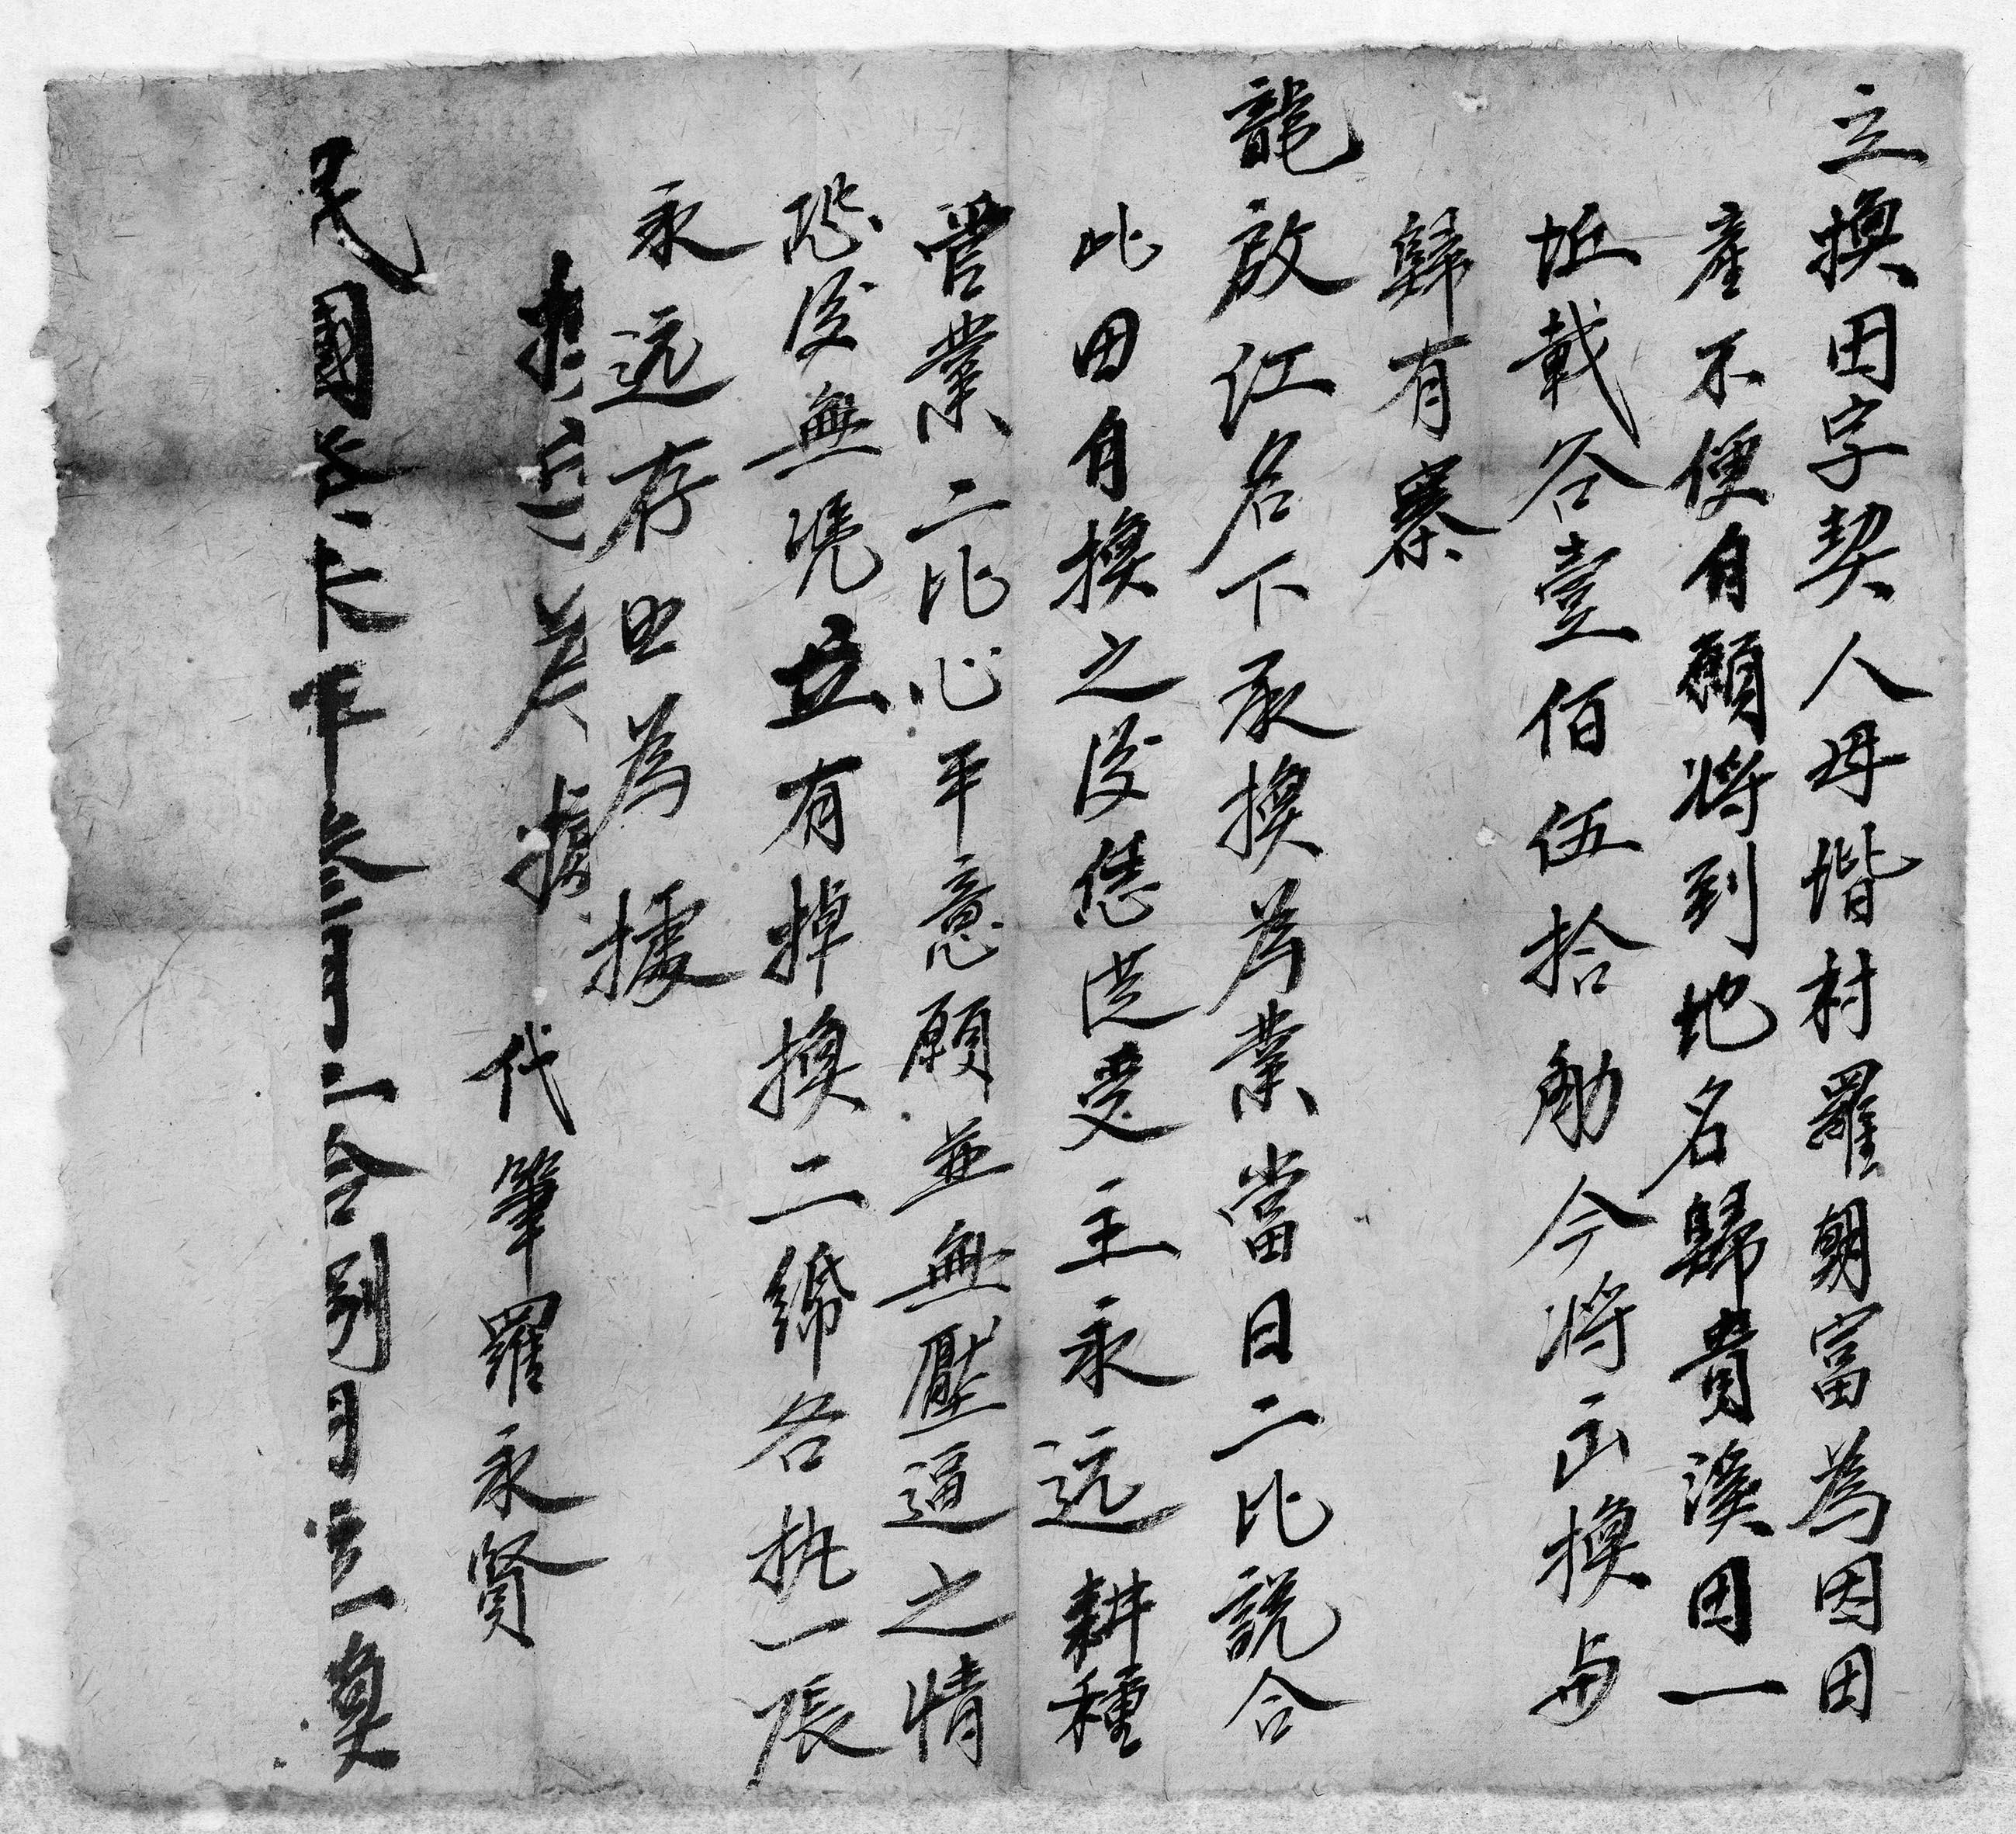 立換田字契人毋堦村羅朝富為因田
產不便自願將到地名歸貴溪田一
坵載谷壹佰伍拾觔今將出換与
歸有寨
龍啟江名下承換為業當日二比說合
此田自換之後恁從受主永远耕種
管業二比心平意願並無壓逼之情
恐後無凴立有掉換二紙各执一張
永远存照為據
代筆羅永賢
民國 年 月 立換